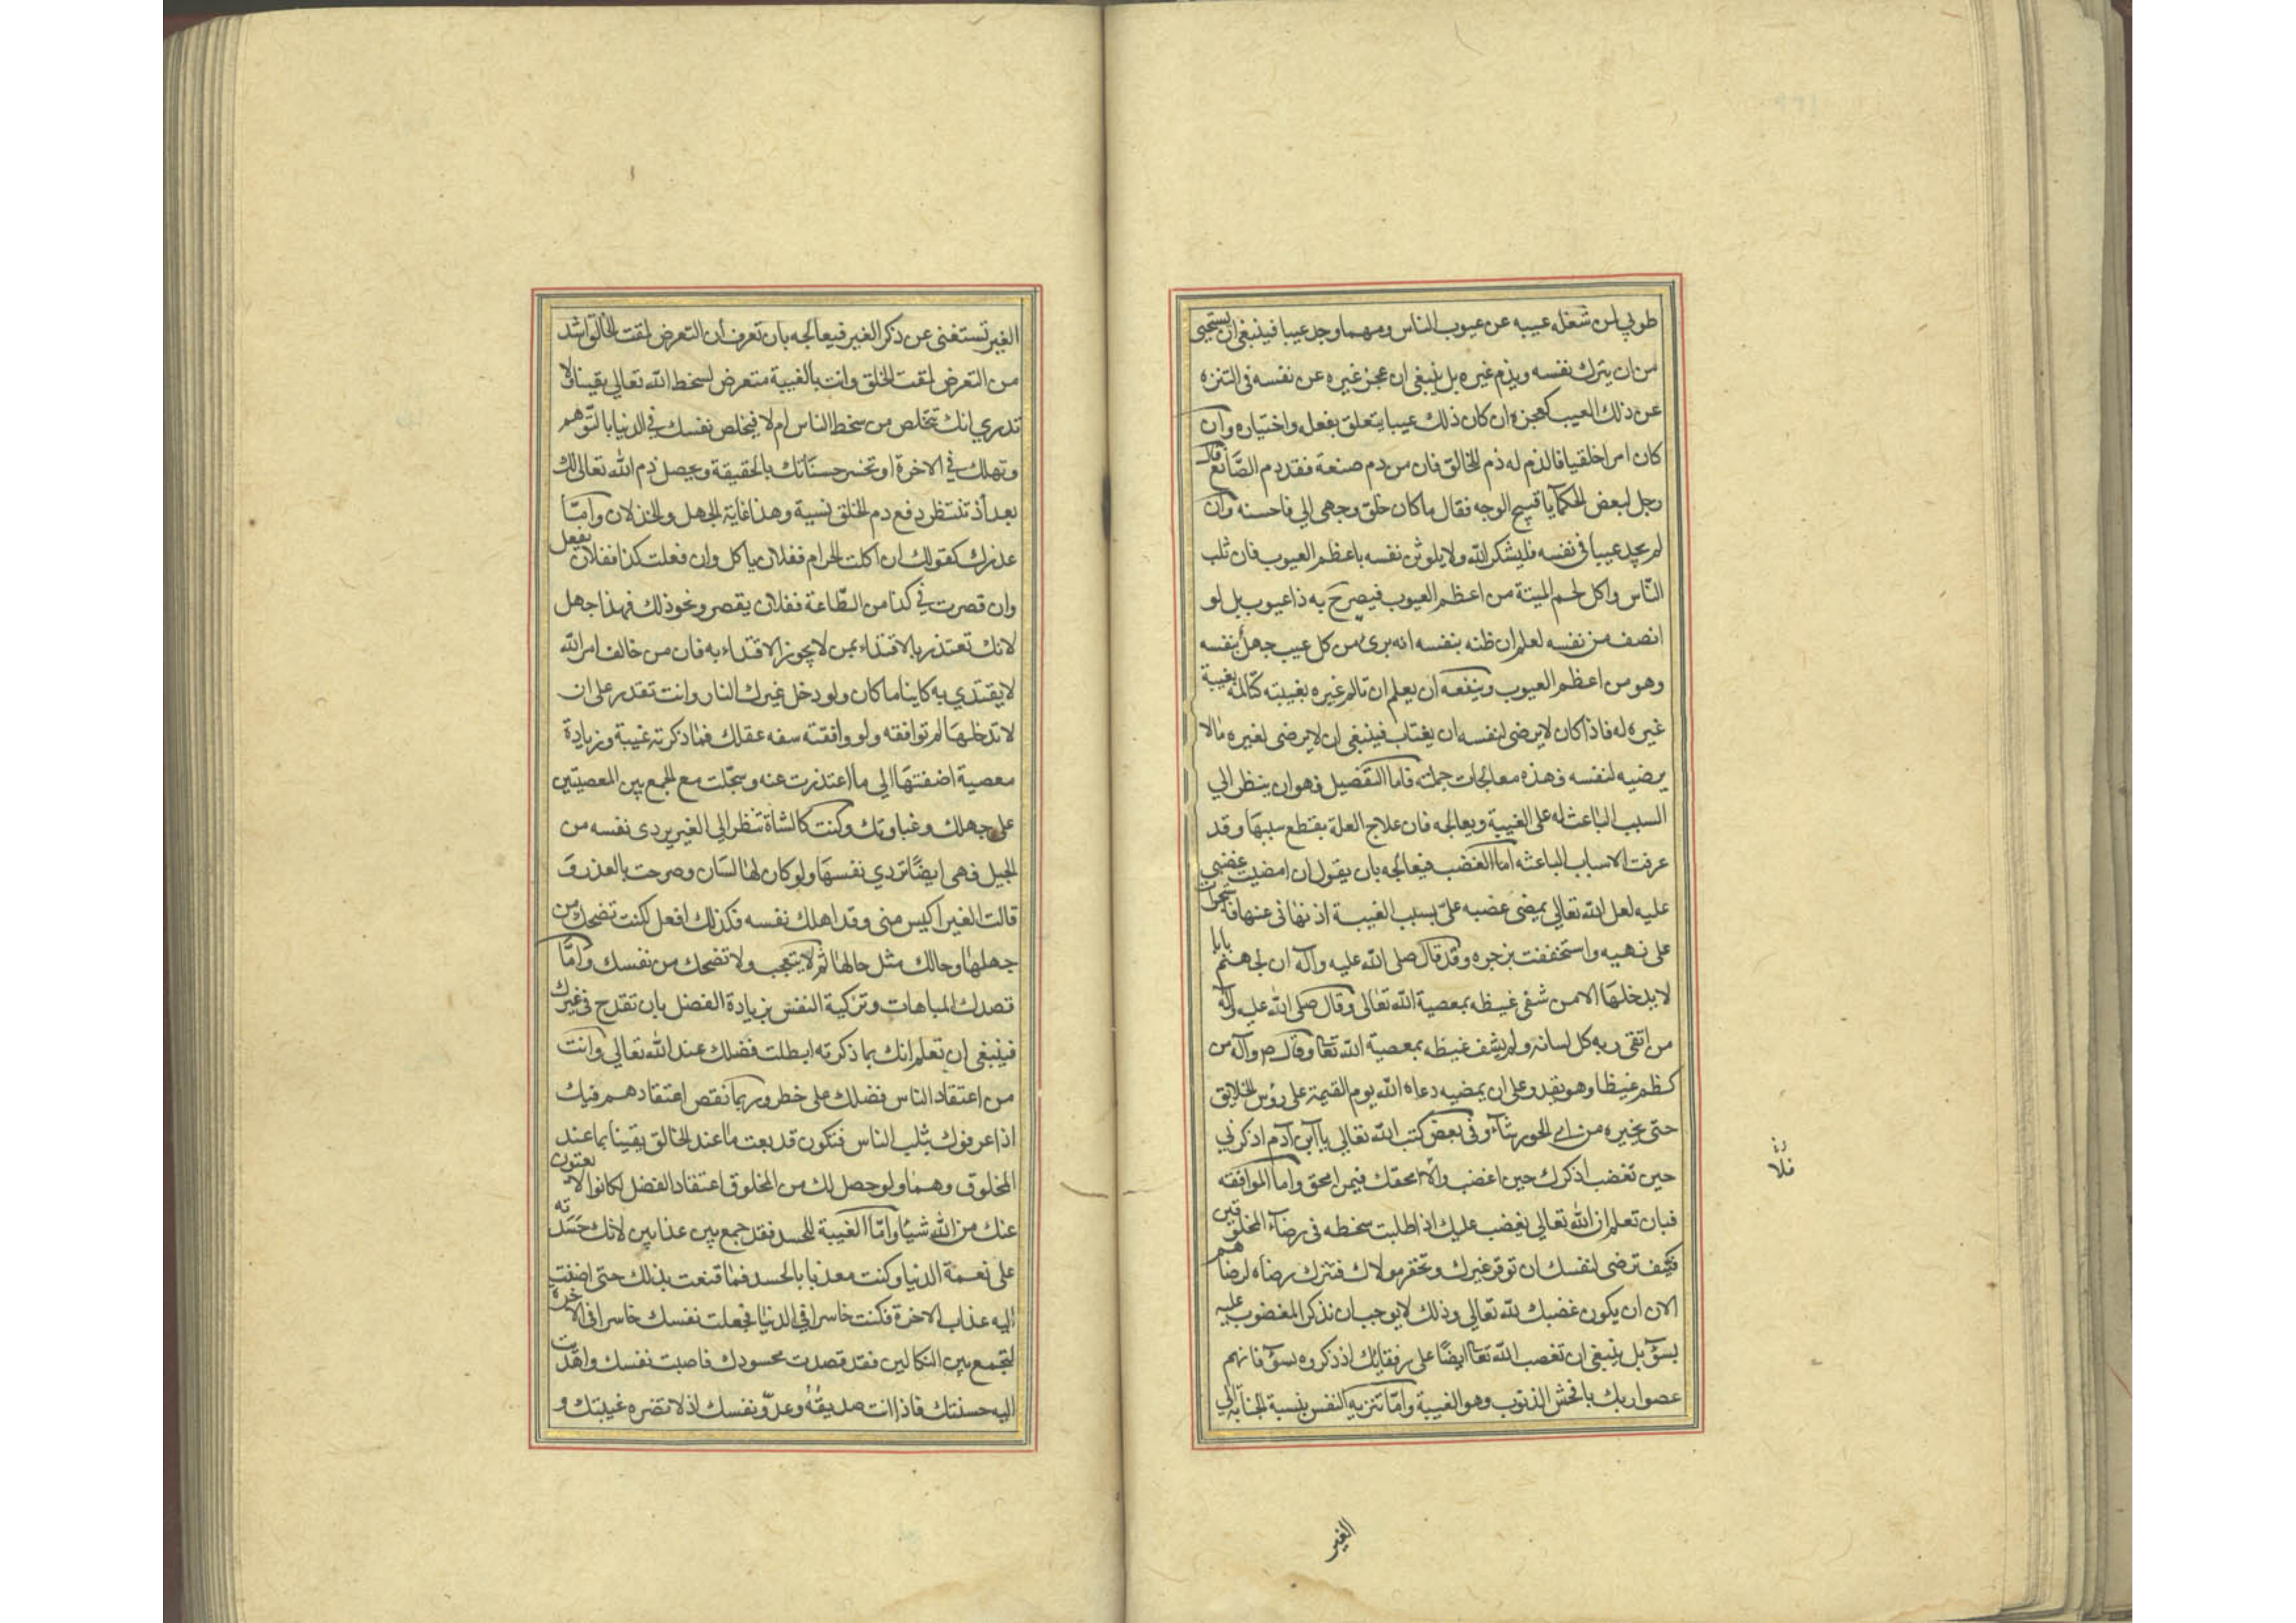 طوبي لمن شغله عيبه عن عيوب الناس ومهما وجد عيبا فينبغي ان يستحيي
من ان يترك نفسه ويذم غيره بل ينبغي ان عجز غيره عن نفسه في التنزه
عن ذلك العيب كعجزه ان كان ذلك عيبا يتعلق بفعله واختياره وان
كان امرا خلقيا فالذم له ذم للخالق فان من ذم صنعة فقد ذم الصانع قال
رجل لبعض الحكمآ يا قبيح الوجه فقال ما كان خلق وجهي الي فاحسنه وان
لم يجد عيبا في نفسه فليشكر الله ولا يلوثن نفسه باعظم العيوب فان ثلب
الناس واكل لحم الميتة من اعظم العيوب فيصرح به ذا عيوب بل لو
انصف من نفسه لعلم ان ظنه بنفسه انه برئ من كل عيب جهل بنفسه
وهو من اعظم العيوب وينفعه ان يعلم ان تالم غيره بغيبته كتالمه بغيبة
غيره له فاذا كان لا يرضى لنفسه ان يغتاب فينبغي ان لا يرضى لغيره مالا
يرضيه لنفسه فهذه معالجات جملة فاما التفصيل فهو ان ينظر الي
السبب الباعث له على الغيبة ويعالجه فان علاج العلة بقطع سببها وقد
عرفت الاسباب الباعثه اما الغضب فيعالجه بان يقول ان امضيت غضبي
عليه لعل الله تعالي يمضي غضبه علي بسبب الغيبة اذ نهاني عنها فاستجرات
على نهيه واستخففت بزجره وقد قال صلى الله عليه وآله ان لجهنم بابا
لا يدخلها الا من شفى غيظه بمعصية الله تعالى وقال صلى الله عليه وآله
من اتقى ربه كل لسانه ولم يشف غيظه بمعصية الله تعا وقال ص وآله من
كظم غيظا وهو يقدر على ان يمضيه دعاه الله يوم القيمة على رؤس الخلايق
حتى يخيره من اي الحور شآء وفى بعض كتب الله تعالي يا ابن آدم اذكرني
حين تغضب اذكرك حين اغضب والا امحقك فيمن امحق واما الموافقه
فبان تعلم ان الله تعالي يغضب عليك اذا طلبت سخطه في رضآء المخلوقين
فكيف ترضى لنفسك ان توقر غيرك وتحقر مولاك فتترك رضاه لرضاهم
الان ان يكون غضبك لله تعالي وذلك لا يوجب ان تذكر المغضوب عليه
بسوء بل ينبغي ان تغضب الله تعا ايضا على رفقايك اذ ذكروه بسوء فانهم
عصوا ربك بافحش الذنوب وهو الغيبة واما تنزيه النفس بنسبة الجنابة الي
فلا
الغير
الغير تستغنى عن ذكر الغير فيعالجه بان تعرف ان التعرض لمقت الخالق اشد
من التعرض لمقت الخلق وانت بالغيبة متعرض لسخط الله تعالي يقينا ولا
تدري انك تتخلص من سخط الناس ام لا فيخلص نفسك في الدنيا بالتوهم
وتهلك في الاخرة او تخسر حسناتك بالحقيقة ويحصل ذم الله تعالى لك
بعد اذ تنتظر دفع ذم الخلق نسية وهذا غاية الجهل والخذلان واما
عذرك كقولك ان اكلت الحرام ففلان ياكل وان فعلت كذا ففلان يفعل
وان قصرت في كذا من الطاعة ففلان يقصر ونحو ذلك فهذا جهل
لانك تعتذر بالاقتداء بمن لا يجوز الاقتداء به فان من خالف امر الله
لا يقتدي به كاينا ما كان ولو دخل غيرك النار وانت تقدر على ان
لا تدخلها لم توافقه ولو وافقته سفه عقلك فما ذكرته غيبة وزيادة
معصية اضفتها الي ما اعتذرت عنه وسجلت مع الجمع بين المعصيتين
على جهلك وغباوتك وكنت كالشاة تنظر الي الغير يردى نفسه من
الجبل فهي ايضا تردي نفسها ولو كان لها لسان وصرحت بالعذر و
قالت الغير اكيس مني وقد اهلك نفسه فكذلك افعل لكنت تضحك من
جهلها وحالك مثل حالها ثم لا يتعجب ولا تضحك من نفسك واما
قصدك المباهات وتزكية النفس بزيادة الفضل بان تقدح في غيرك
فينبغي ان تعلم انك بما ذكرته ابطلت فضلك عند الله تعالي وانت
من اعتقاد الناس فضلك على خطر وربما نقص اعتقادهم فيك
اذا عرفوك بثلب الناس فتكون قد بعت ما عند الخالق يقينا بما عند
المخلوق وهما ولو حصل لك من المخلوق اعتقاد الفضل لكانوا لا يغنون
عنك من الله شيا واما الغيبة للحسد فقد جمع بين عذابين لانك حسدته
على نعمة الدنيا وكنت معذبا بالحسد فما قنعت بذلك حتى اضفت
اليه عذاب الاخرة فكنت خاسرا في الدنيا فجعلت نفسك خاسرا في الاخرة
لتجمع بين النكالين فقد قصدت محسودك فاصبت نفسك واهديت
اليه حسنتك فاذا انت صديقه وعدو نفسك اذ لا تضره غيبتك و